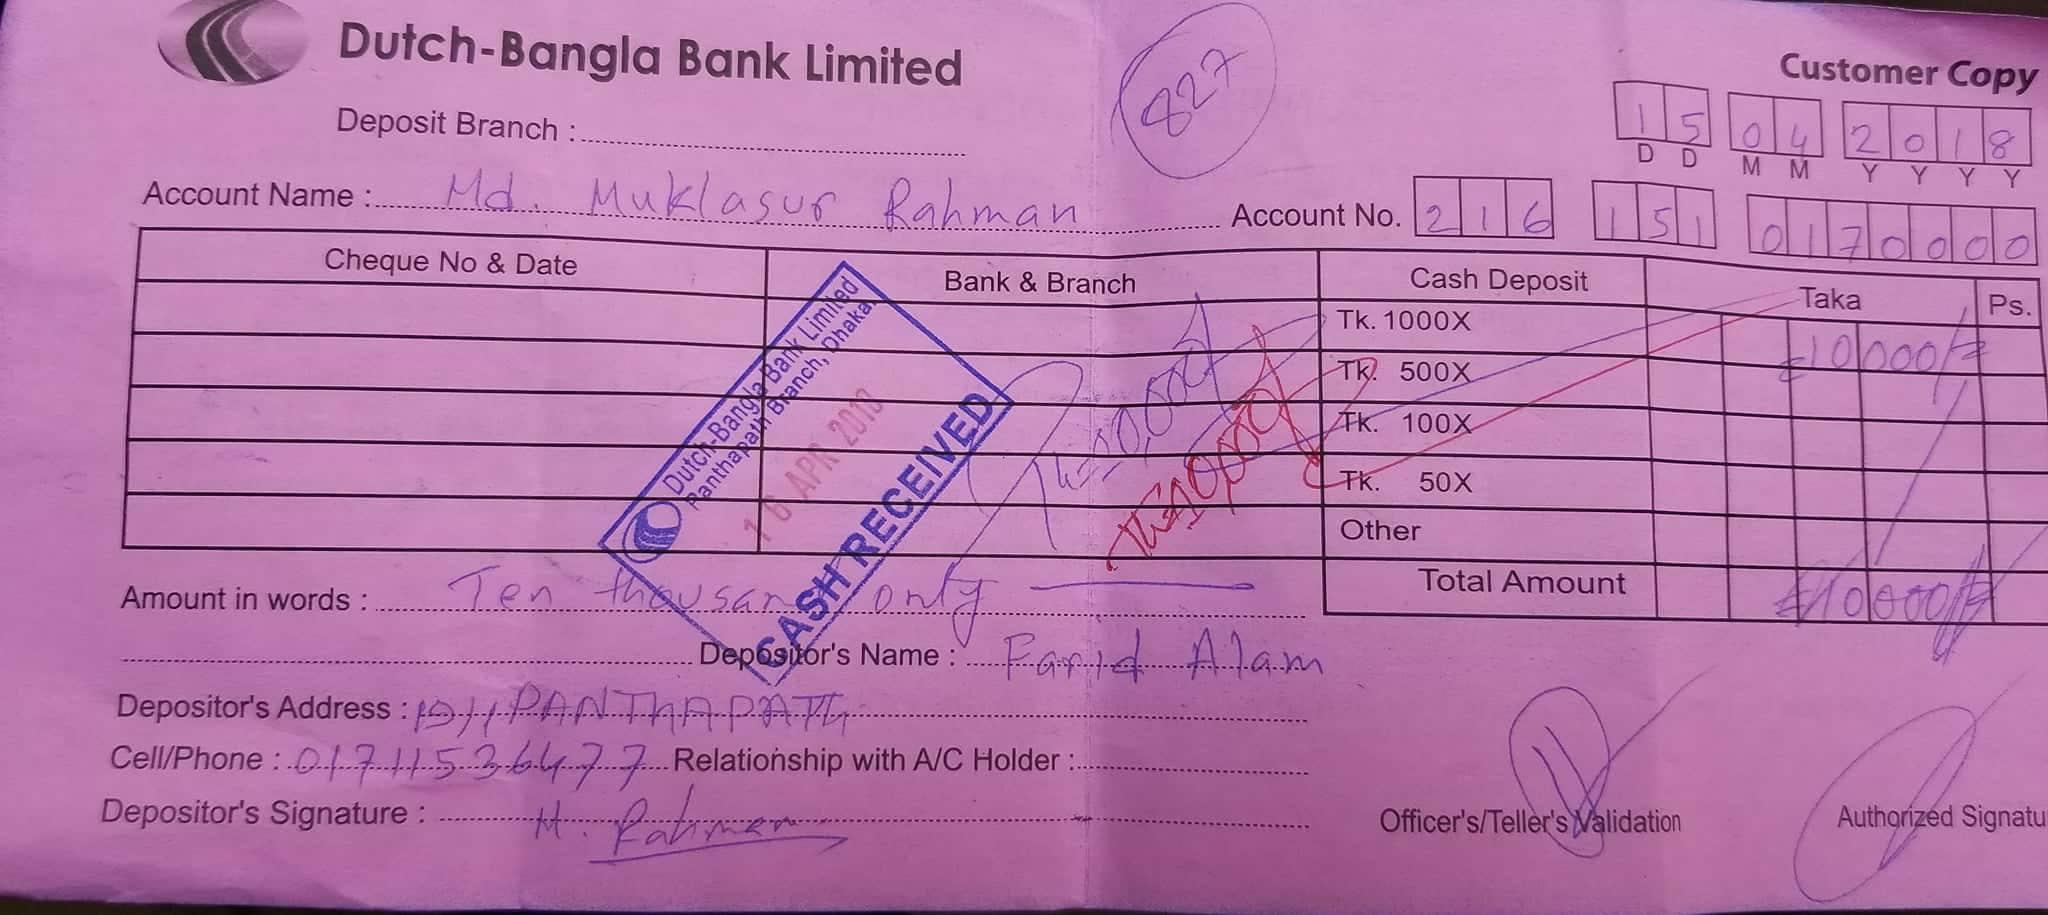 Dutch-Bangla Bank Limited
827
Customer Copy
15 04 2018
D D M M Y Y Y Y
Deposit Branch :
Account Name : Md. Muklasur Rahman
Account No. 216 151 0170000
Cheque No & Date Bank & Branch Cash Deposit Taka Ps.
Tk. 1000X 10000/=
Tk. 500X
Tk. 100X
Tk. 50X
Other
Total Amount 10000/=
Dutch-Bangla Bank Limited
Panthapath Branch, Dhaka
16 APR 2018
CASH RECEIVED
Tk=10,000/
Tk=10,000/
Amount in words : Ten thousand only
Depositor's Name : Farid Alam
Depositor's Address : PANTHAPATH
Cell/Phone : 01711536477 Relationship with A/C Holder :
Depositor's Signature : M. Rahman
Officer's/Teller's Validation
Authorized Signatu